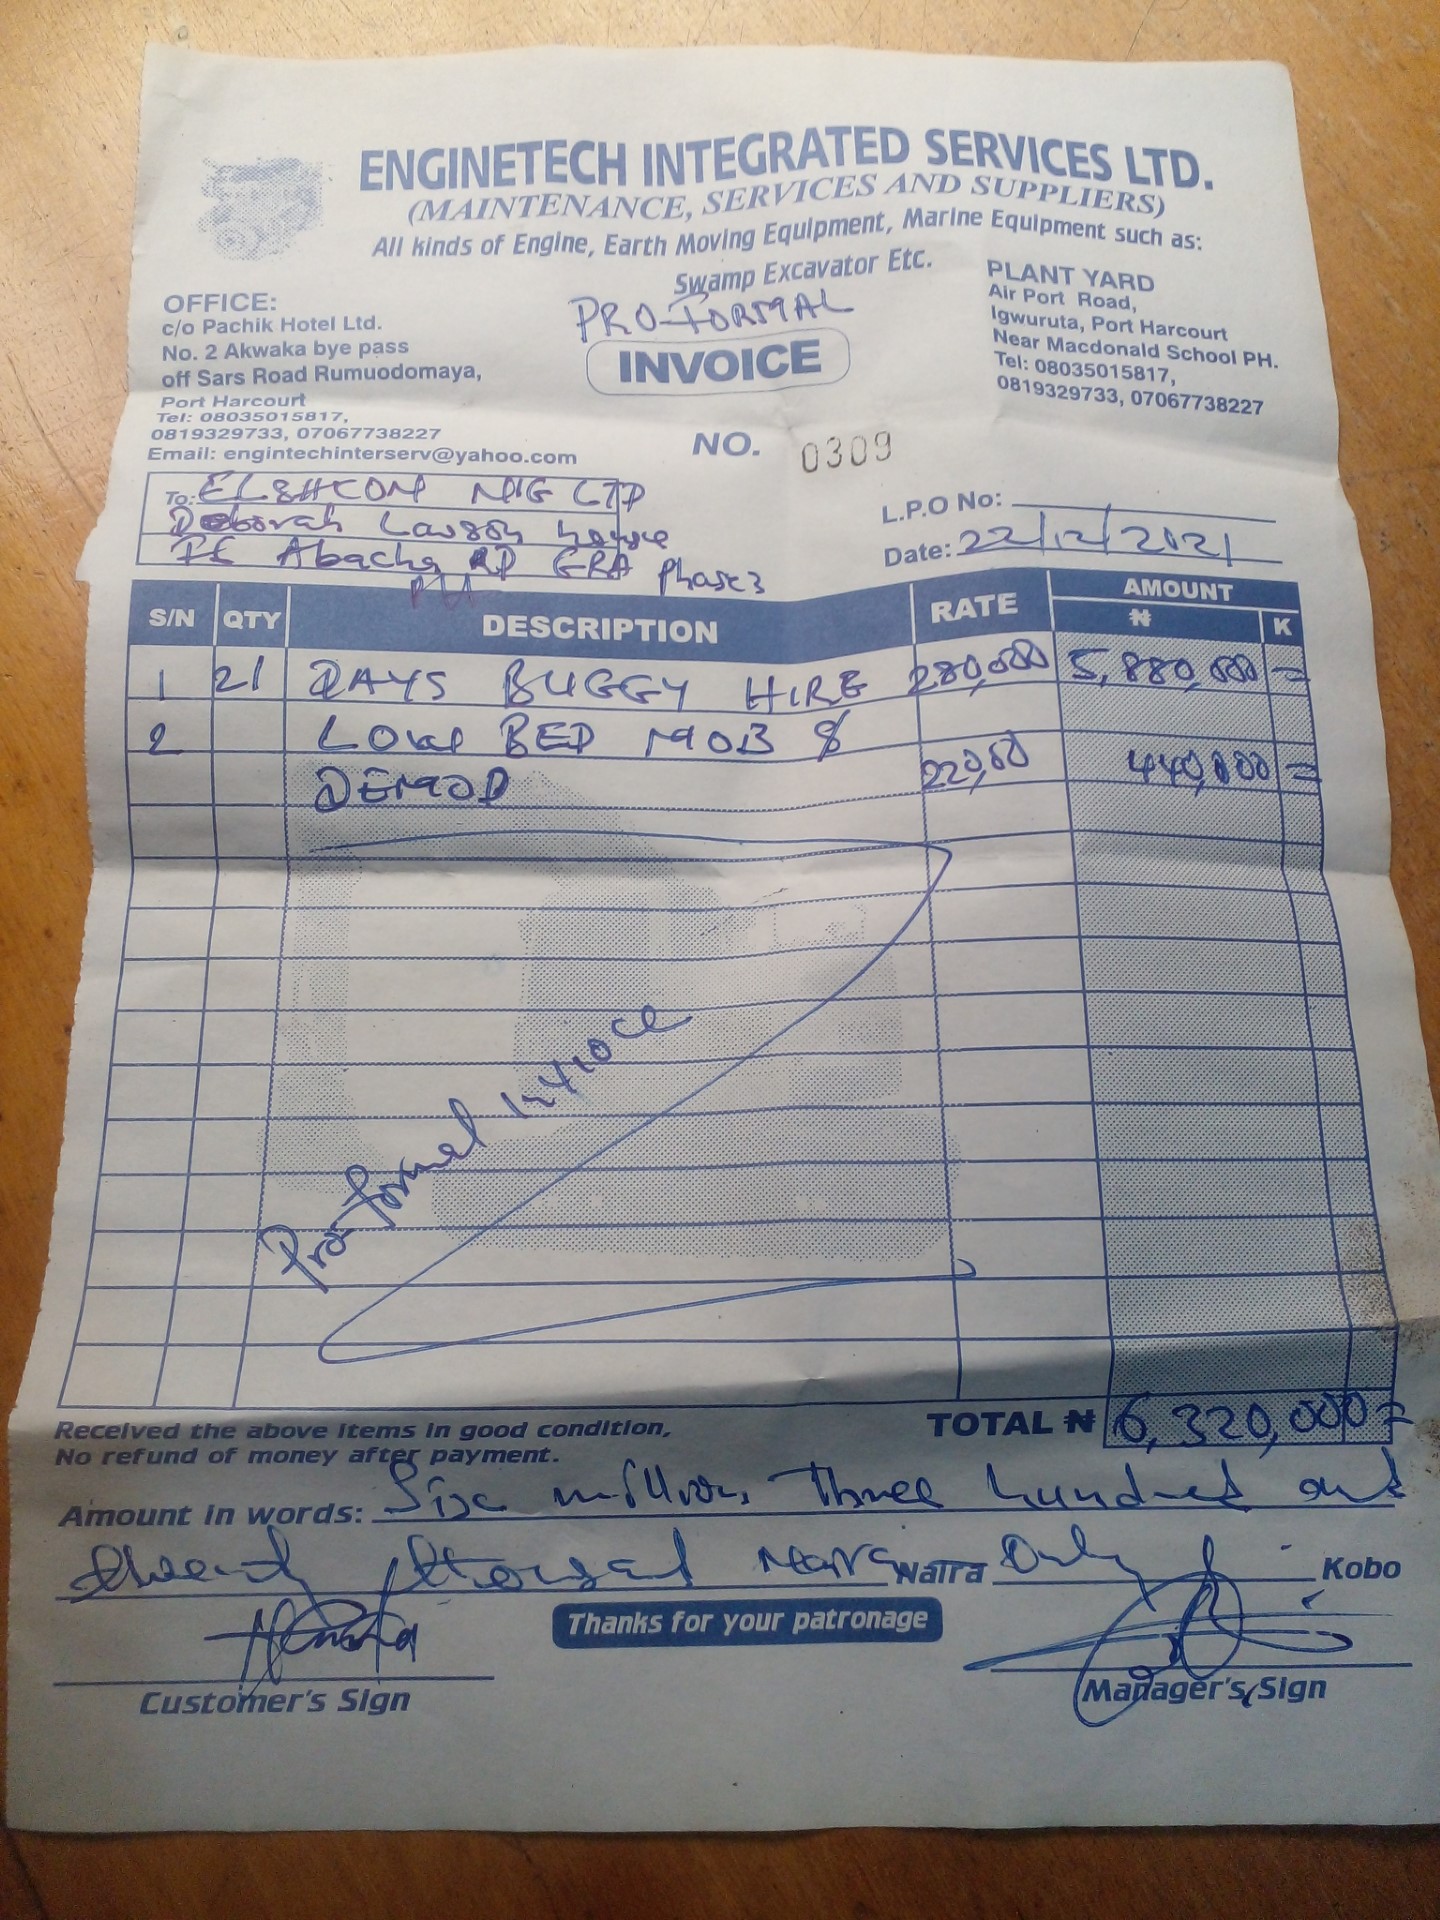 ENGINETECH INTEGRATED SERVICES LTD.
(MAINTENANCE, SERVICES AND SUPPLIERS)
All kinds of Engine, Earth Moving Equipment, Marine Equipment such as:
Swamp Excavator Etc.
OFFICE:
c/o Pachik Hotel Ltd.
No. 2 Akwaka bye pass
off Sars Road Rumuodomaya,
Port Harcourt
Tel: 08035015817,
0819329733, 07067738227
Email: engintechinterserv@yahoo.com
PRO-FORMAL
INVOICE
NO. 0309
PLANT YARD
Air Port Road,
Igwuruta, Port Harcourt
Near Macdonald School PH.
Tel: 08035015817,
0819329733, 07067738227
To: ELSHCON NIG LTD
Deborah Lawson house
Abacha RD GRA Phase 3
PH
L.P.O No:
Date: 22/12/2021
S/N QTY DESCRIPTION RATE AMOUNT
₦ K
1 21 DAYS BUGGY HIRE 280,000 5,880,000 =
2 LOW BED MOB &
DEMOB 220,00 440,000 =
Pro-formal Invioce
Received the above items in good condition,
No refund of money after payment.
TOTAL ₦ 6,320,000 =
Amount in words: Six million, Three hundred and
twenty thousand Naira Naira Only Kobo
Thanks for your patronage
Customer's Sign
Manager's Sign